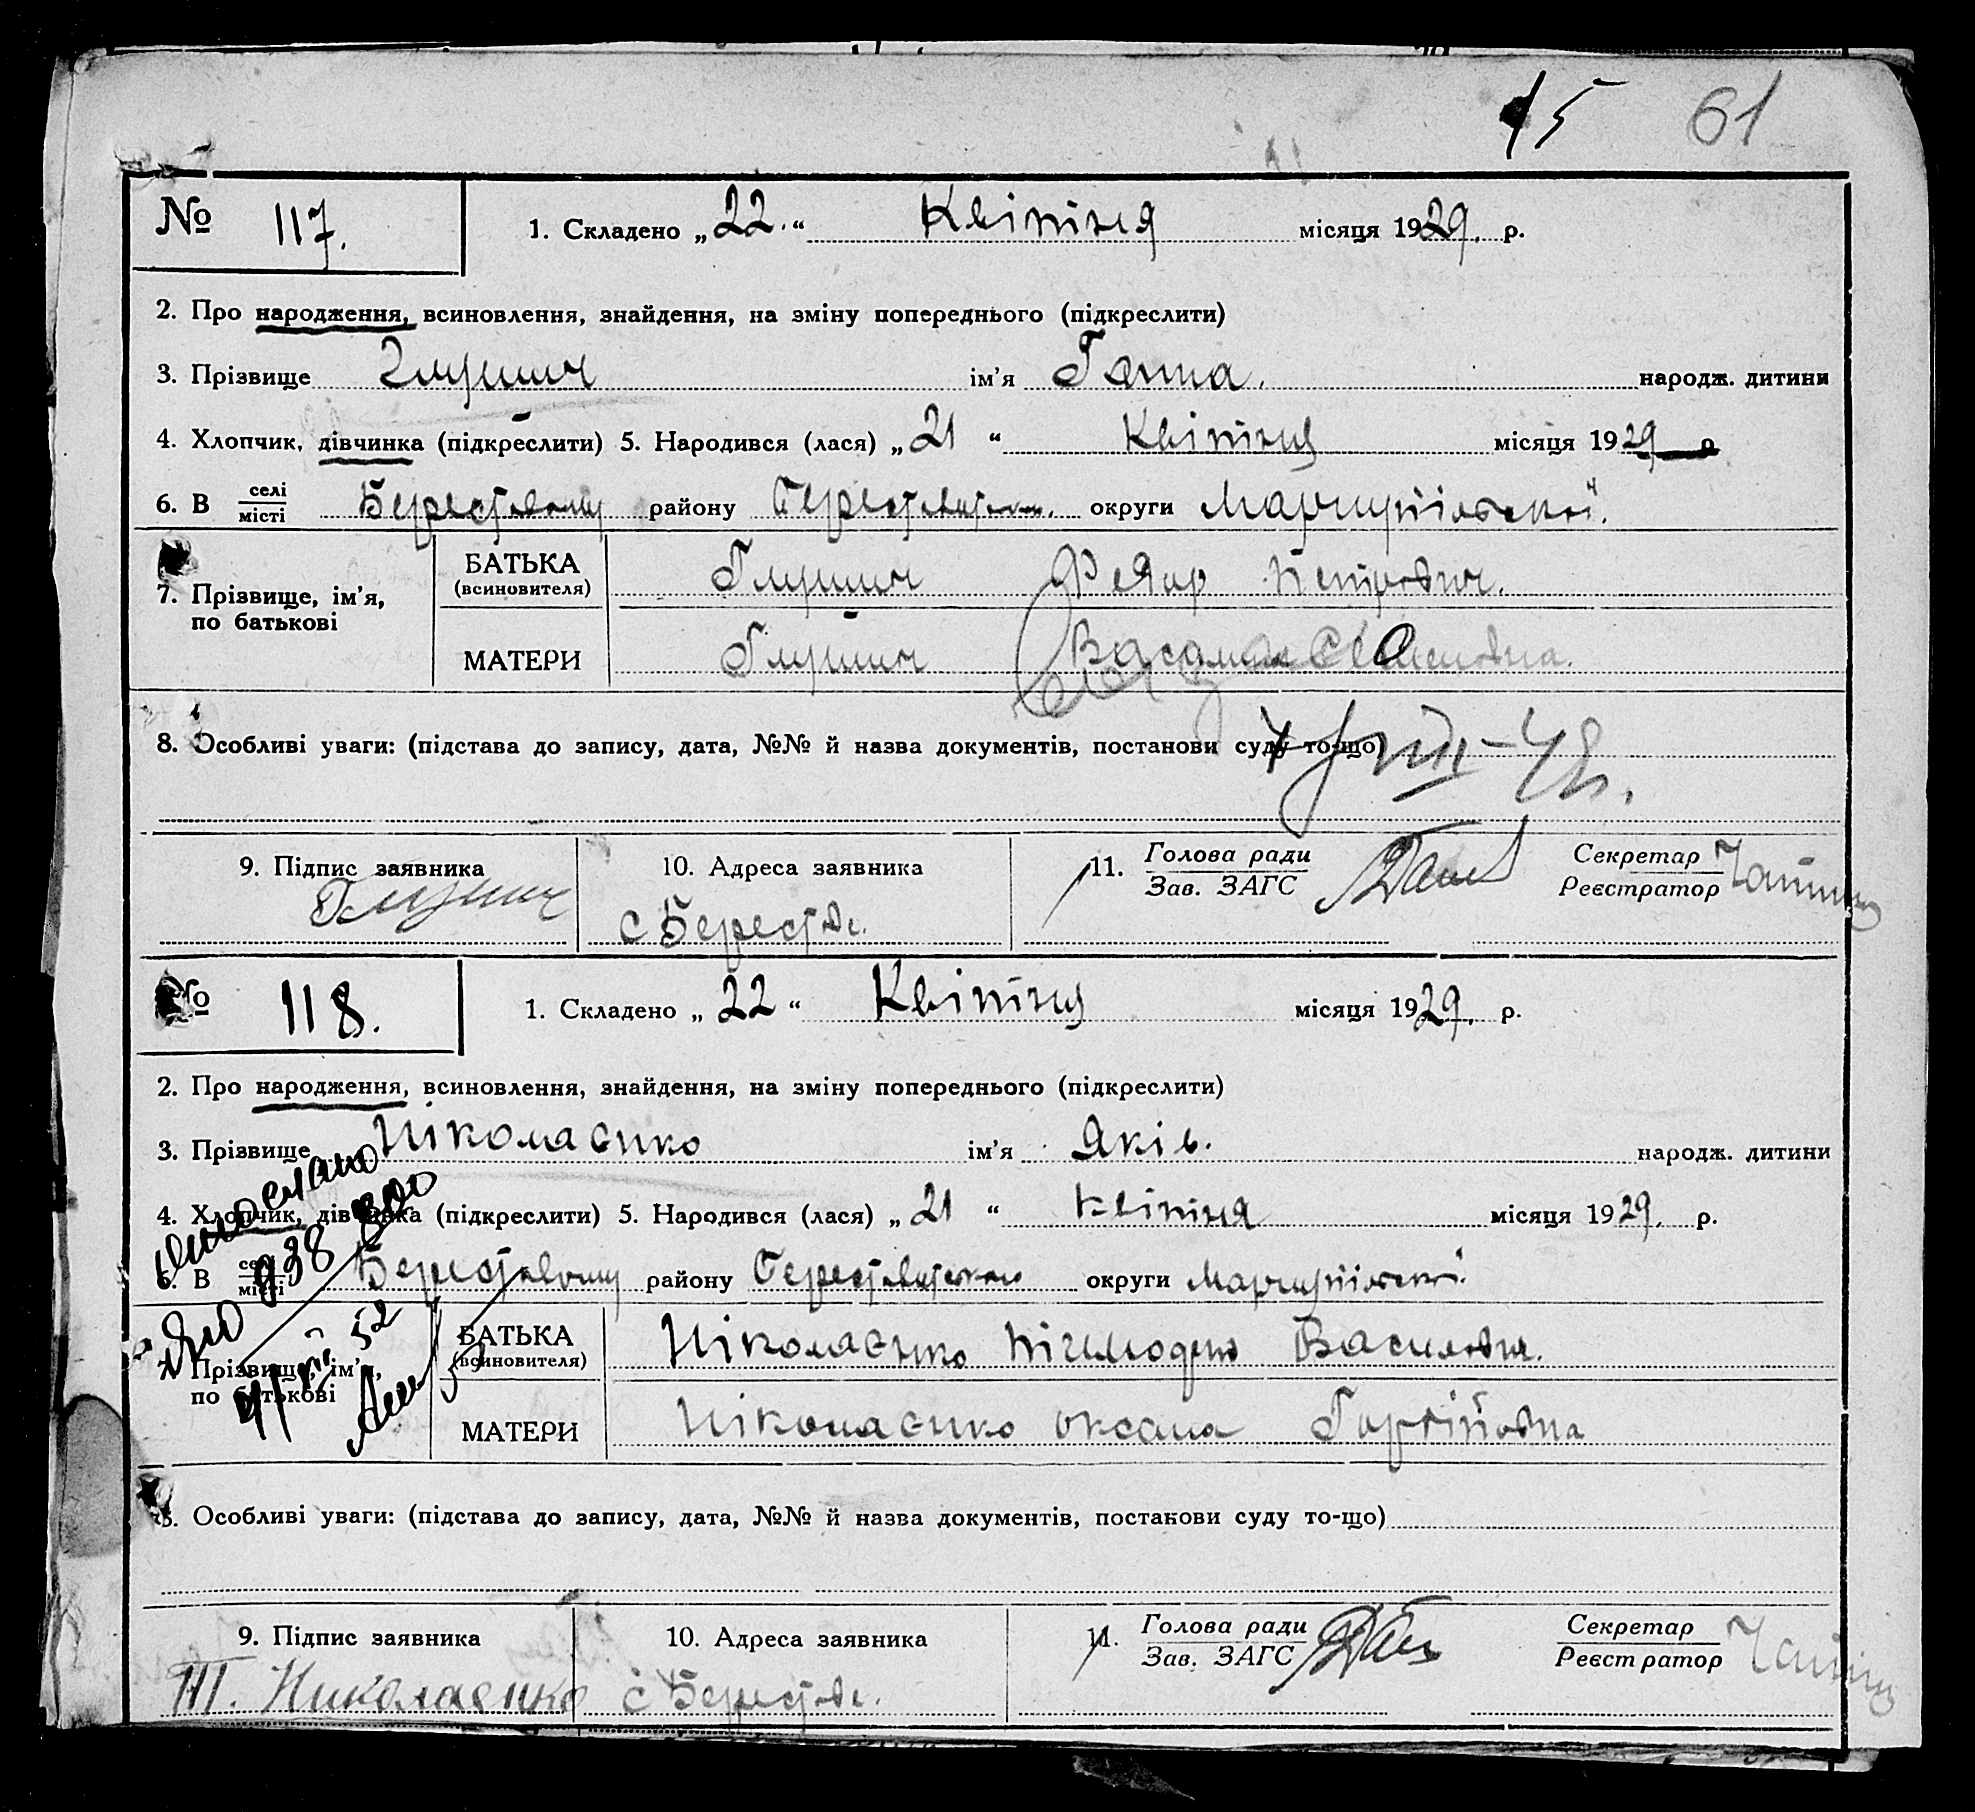 15 61
№ 117. 1. Складено „22.“ Квітня місяця 1929. р.
2. Про народження, всиновлення, знайдення, на зміну попереднього (підкреслити)
3. Прізвище Глушич ім’я Ганна. народж. дитини
4. Хлопчик, дівчинка (підкреслити) 5. Народився (лася) „21“ Квітня місяця 1929 р
6. В селі місті Берестовому району округи Маріупільської.
7. Прізвище, ім’я, по батькові
БАТЬКА (всиновителя) Глушич Федор Петрович.
МАТЕРИ Глушич
8. Особливі уваги: (підстава до запису, дата, №№ й назва документів, постанови суду то-що)
9. Підпис заявника Глушич
10. Адреса заявника с Берестове.
11. Голова ради Зав. ЗАГС
Секретар Реєстратор
№ 118. 1. Складено „22“ Квітня місяця 1929. р.
2. Про народження, всиновлення, знайдення, на зміну попереднього (підкреслити)
3. Прізвище Ніколаєнко ім’я Яків. народж. дитини
4. Хлопчик, дівчинка (підкреслити) 5. Народився (лася) „21“ Квітня місяця 1929. р.
6. В селі місті Берестовому району округи Маріупільської
7. Прізвище, ім’я, по батькові
БАТЬКА (всиновителя) Ніколаєнко Василович.
МАТЕРИ Ніколаєнко Оксана Гордіївна
8. Особливі уваги: (підстава до запису, дата, №№ й назва документів, постанови суду то-що)
9. Підпис заявника Т. Николаенко
10. Адреса заявника с Берестове.
11. Голова ради Зав. ЗАГС
Секретар Реєстратор